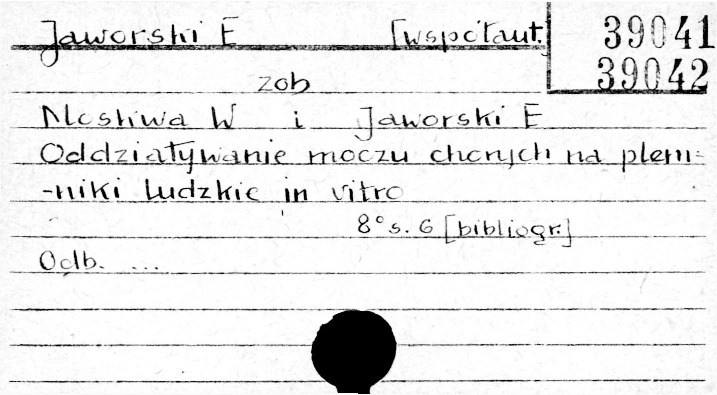 Jaworski E [współaut.] 39041
39042
zob
Moskwa W i Jaworski E
Oddziaływanie moczu chorych na plem-
-niki ludzkie in vitro
8° s. 6 [bibliogr.]
Odb. ...